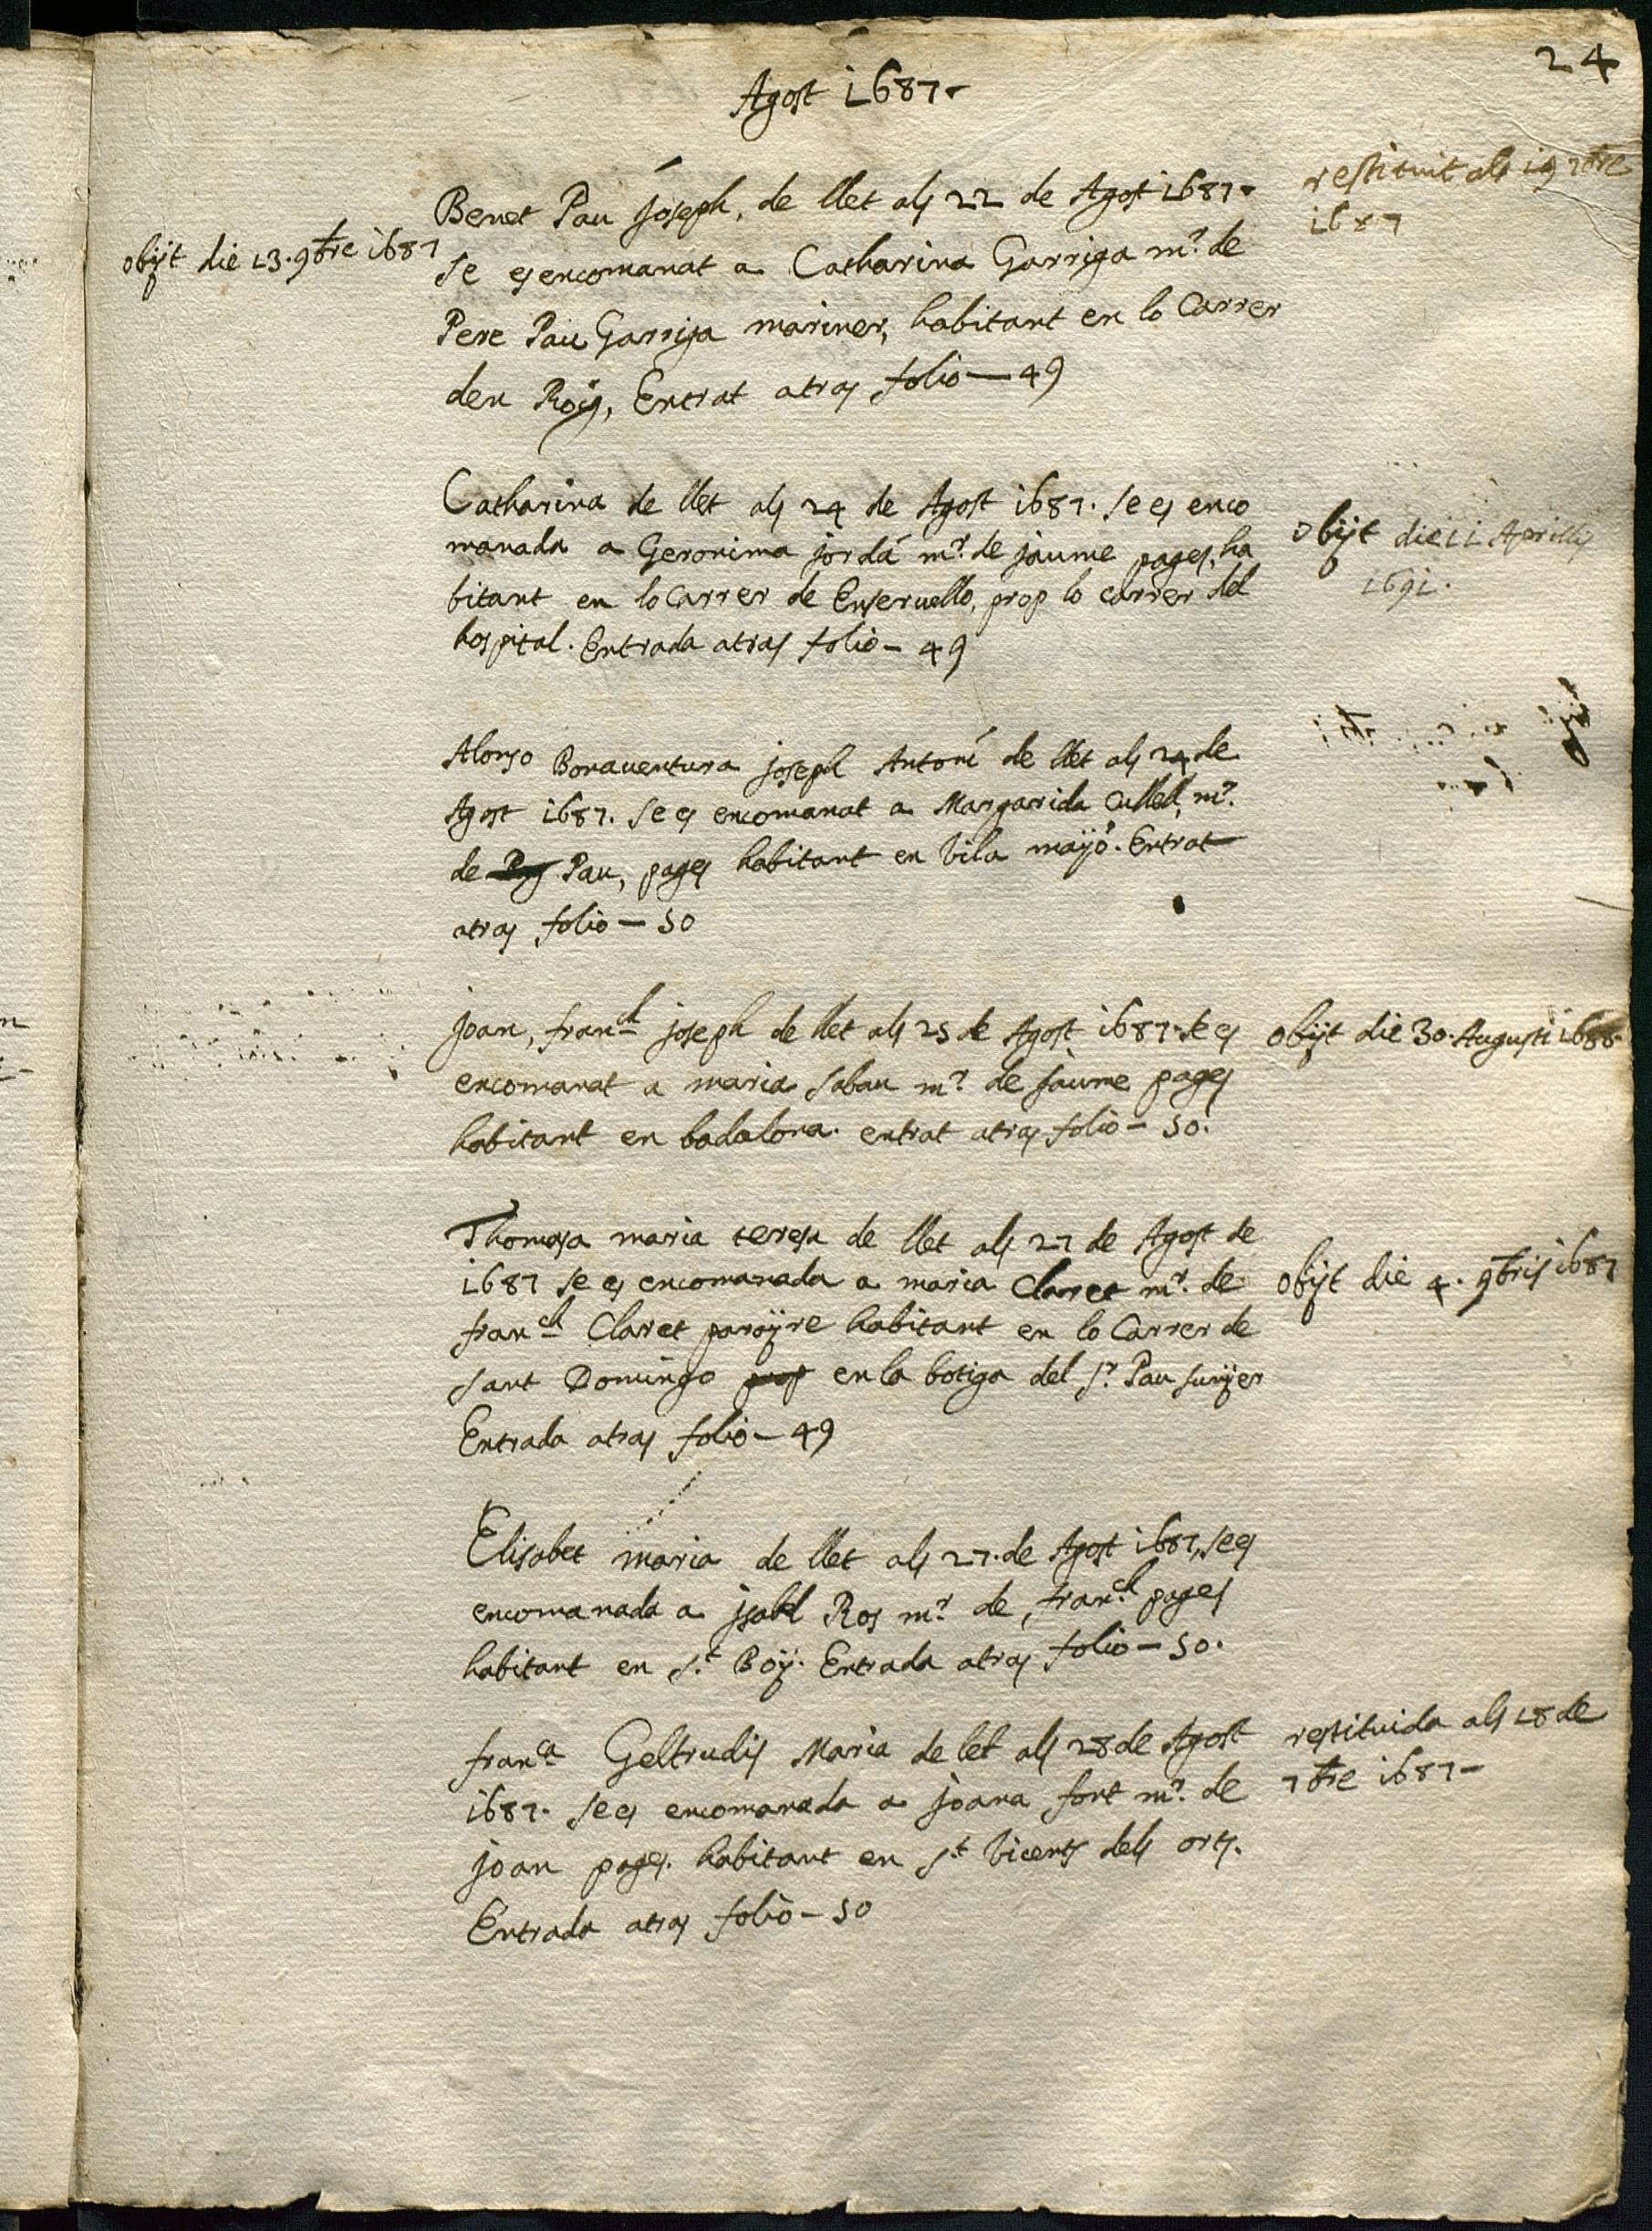 24
Agost 1687.
Benet Pau Joseph, de llet als 22 de Agost 1687.
se es encomanat a Catharina Garriga mr. de
Pere Pau Garriga mariner, habitant en lo Carrer
den Roig, Entrat atras folio — 49
obijt die 13. 9bre 1687
restituit als 19 7bre
1687
Catharina de llet als 24 de Agost 1687. se es enco
manada a Geronima jordá mr. de jaume pages, ha
bitant en lo Carrer de Enseruello, prop lo carrer del
hospital. Entrada atras folio — 49
obijt die 11 Aprilis
1691.
Alonso Bonauentura joseph Antoni de llet als 24 de
Agost 1687. se es encomanat a Margarida Cullell, mr.
de Pau, pages habitant en Vila mayò. Entrat
atras folio — 50
joan, franch joseph de llet als 25 de Agost 1687. se es
encomanat a maria sabau mr. de jaume pages
habitant en badalona. entrat atras folio — 50.
obijt die 30. Augusti 1688
Thomasa maria teresa de llet als 27 de Agost de
1687 se es encomanada a maria Claret mr. de
franch Claret parayre habitant en lo Carrer de
sant Domingo prop en la botiga del sr. Pau sunyer
Entrada atras folio — 49
obijt die 4. 9bris 1687
Elisabet maria de llet als 27. de Agost 1687, se es
encomanada a jsabel Ros mr. de franch pages
habitant en st. Boÿ. Entrada atras folio — 50.
franca Geltrudis Maria de let als 28 de Agost
1687. se es encomanada a joana font mr. de
joan pages. habitant en st Vicents dels orts.
Entrada atras folio — 50
restituida als 18 de
7bre 1687 —